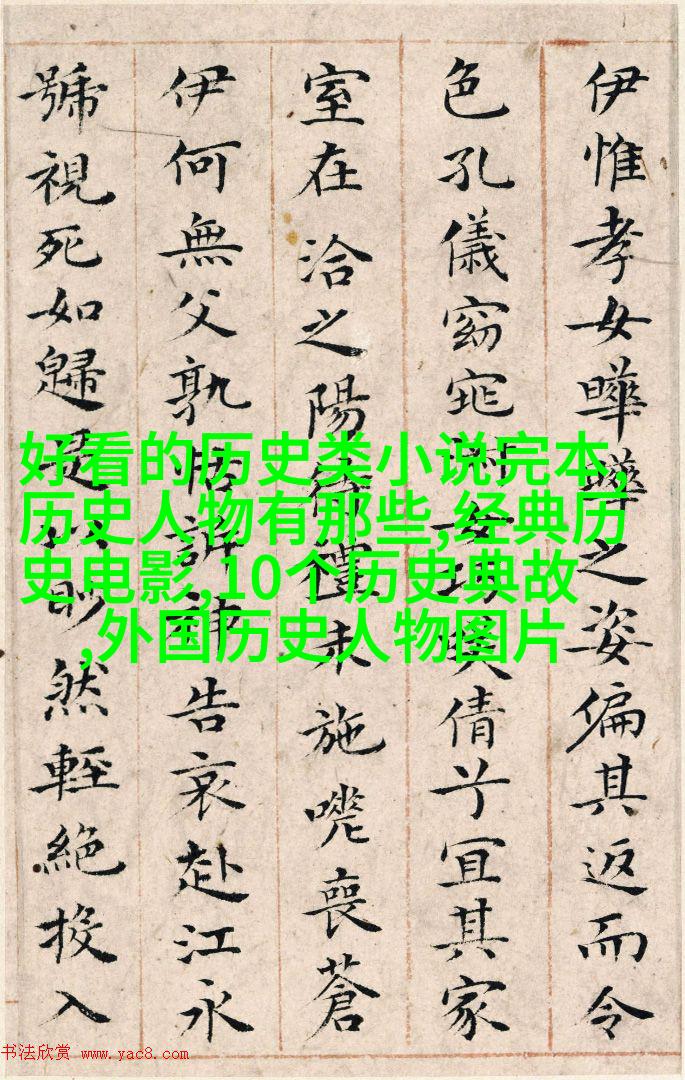 伊惟孝女曄曄之姿偏其返而令
色孔儀窈窕淑女巧笑倩兮宜其家
室在洽之陽待禮未施嗟喪蒼
伊何無父孰怙訴神告哀赴江永
號視死如歸是以眇然輕絕投入
好看的历史类小说完本,
历史人物有那些,经典历
史电影,10个历史典故
,外国历史人物图片
书法欣赏 www.yac8.com